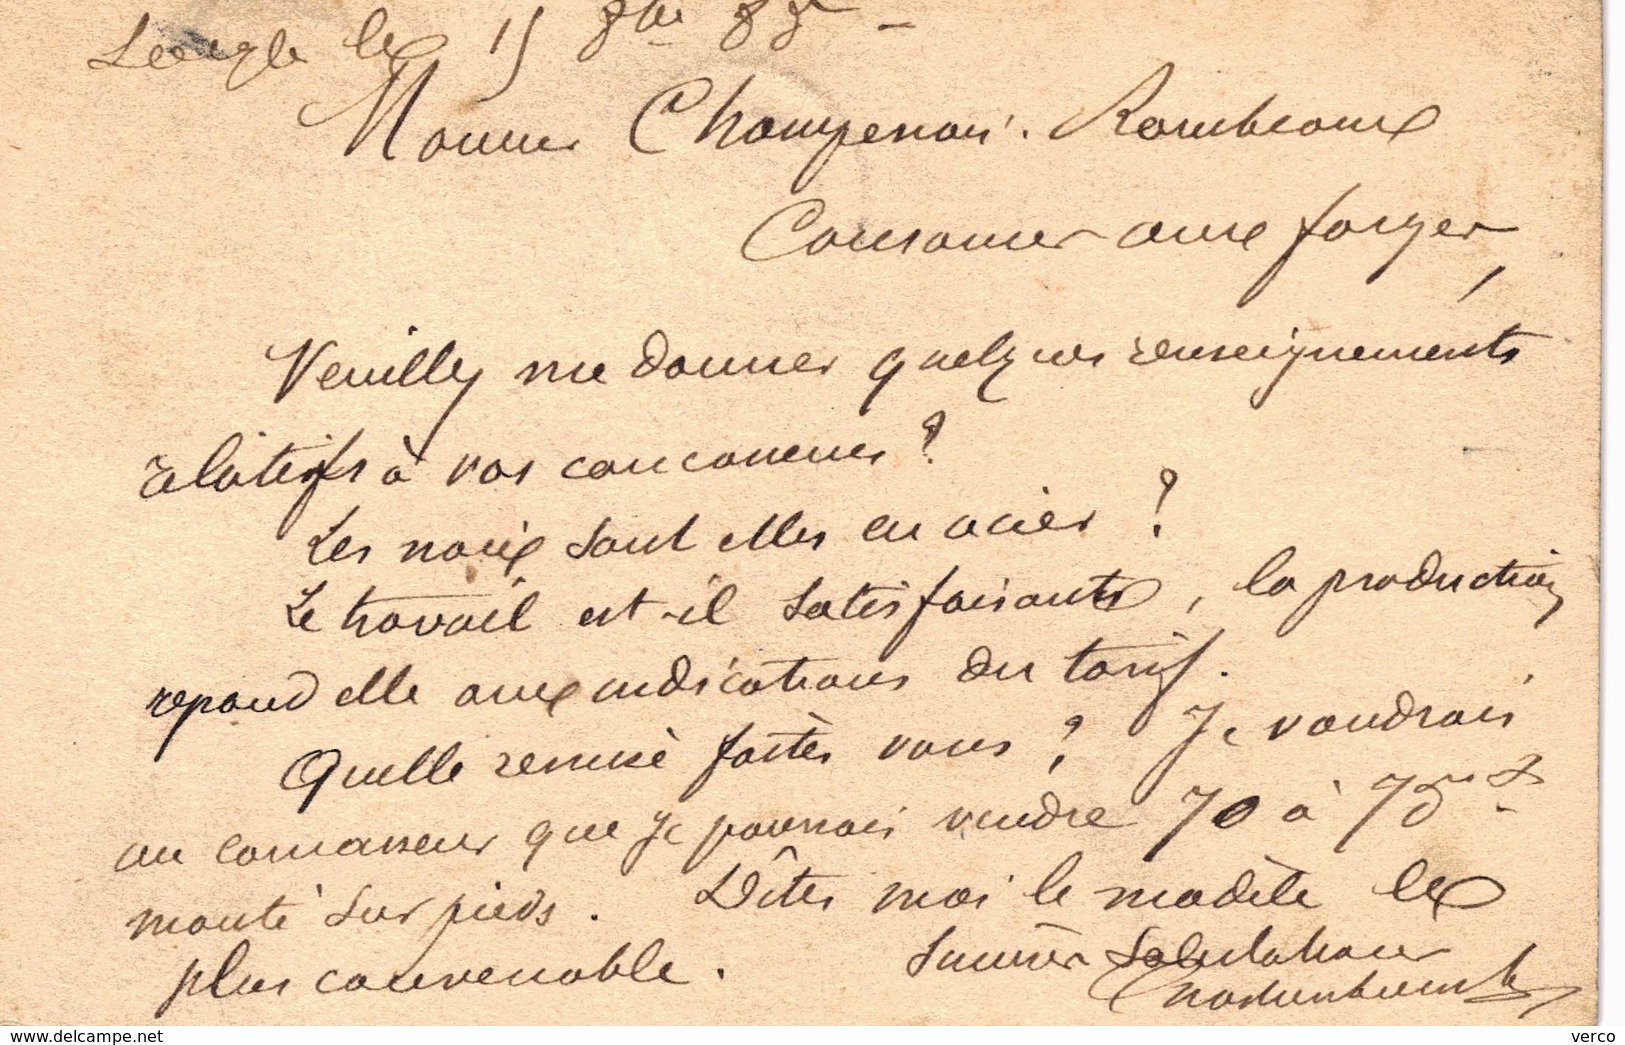 Laigle le 15 8bre 85 -
Monsieur Champenois. Rambeaux
Cousances aux forges,
Veuillez me donner quelques renseignements
relatifs à vos concasseurs ?
Les noix sont elles en acier ?
Le travail est-il satisfaisants, la production
repond elle aux indications du tarif.
Quelle remise faites vous ? Je voudrais
un concasseur que je pourrais vendre 70 à 75
monté sur pieds. Dîtes moi le modèle le
plus convenable. Sincères Salutations
delcampe.net
verco